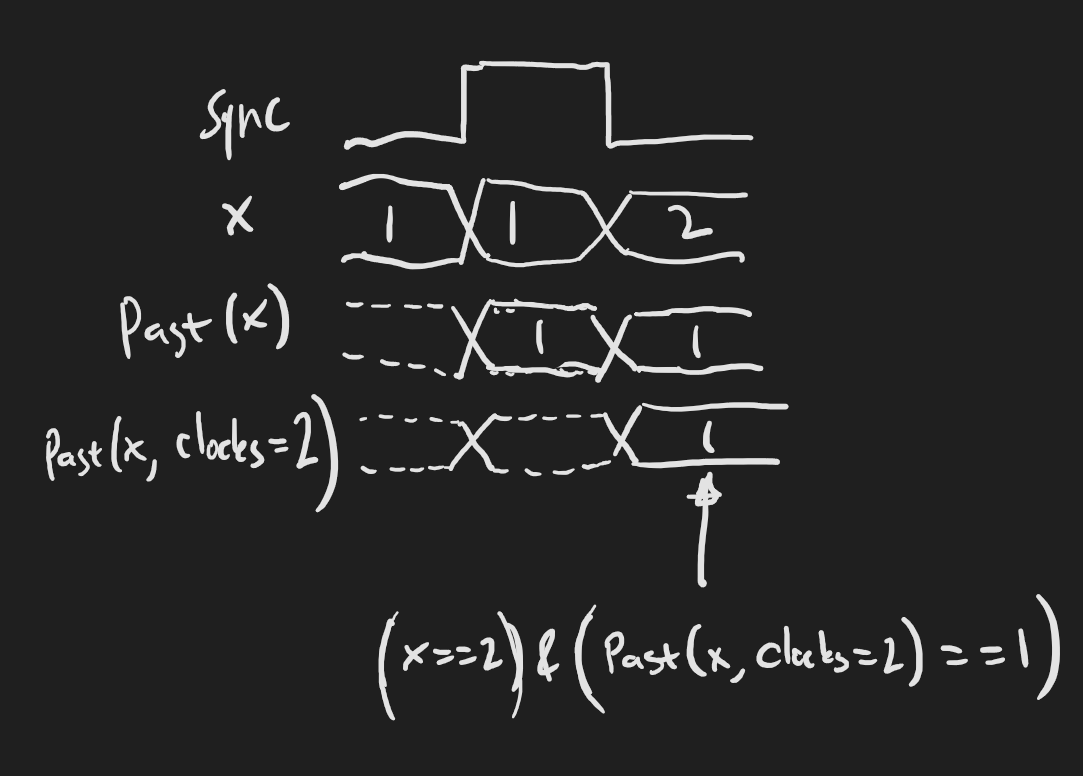 Sync
x 1 1 2
Past(x) 1 1
Past(x, clocks=2) 1
(x==2) & (Past(x, clocks=2)==1)